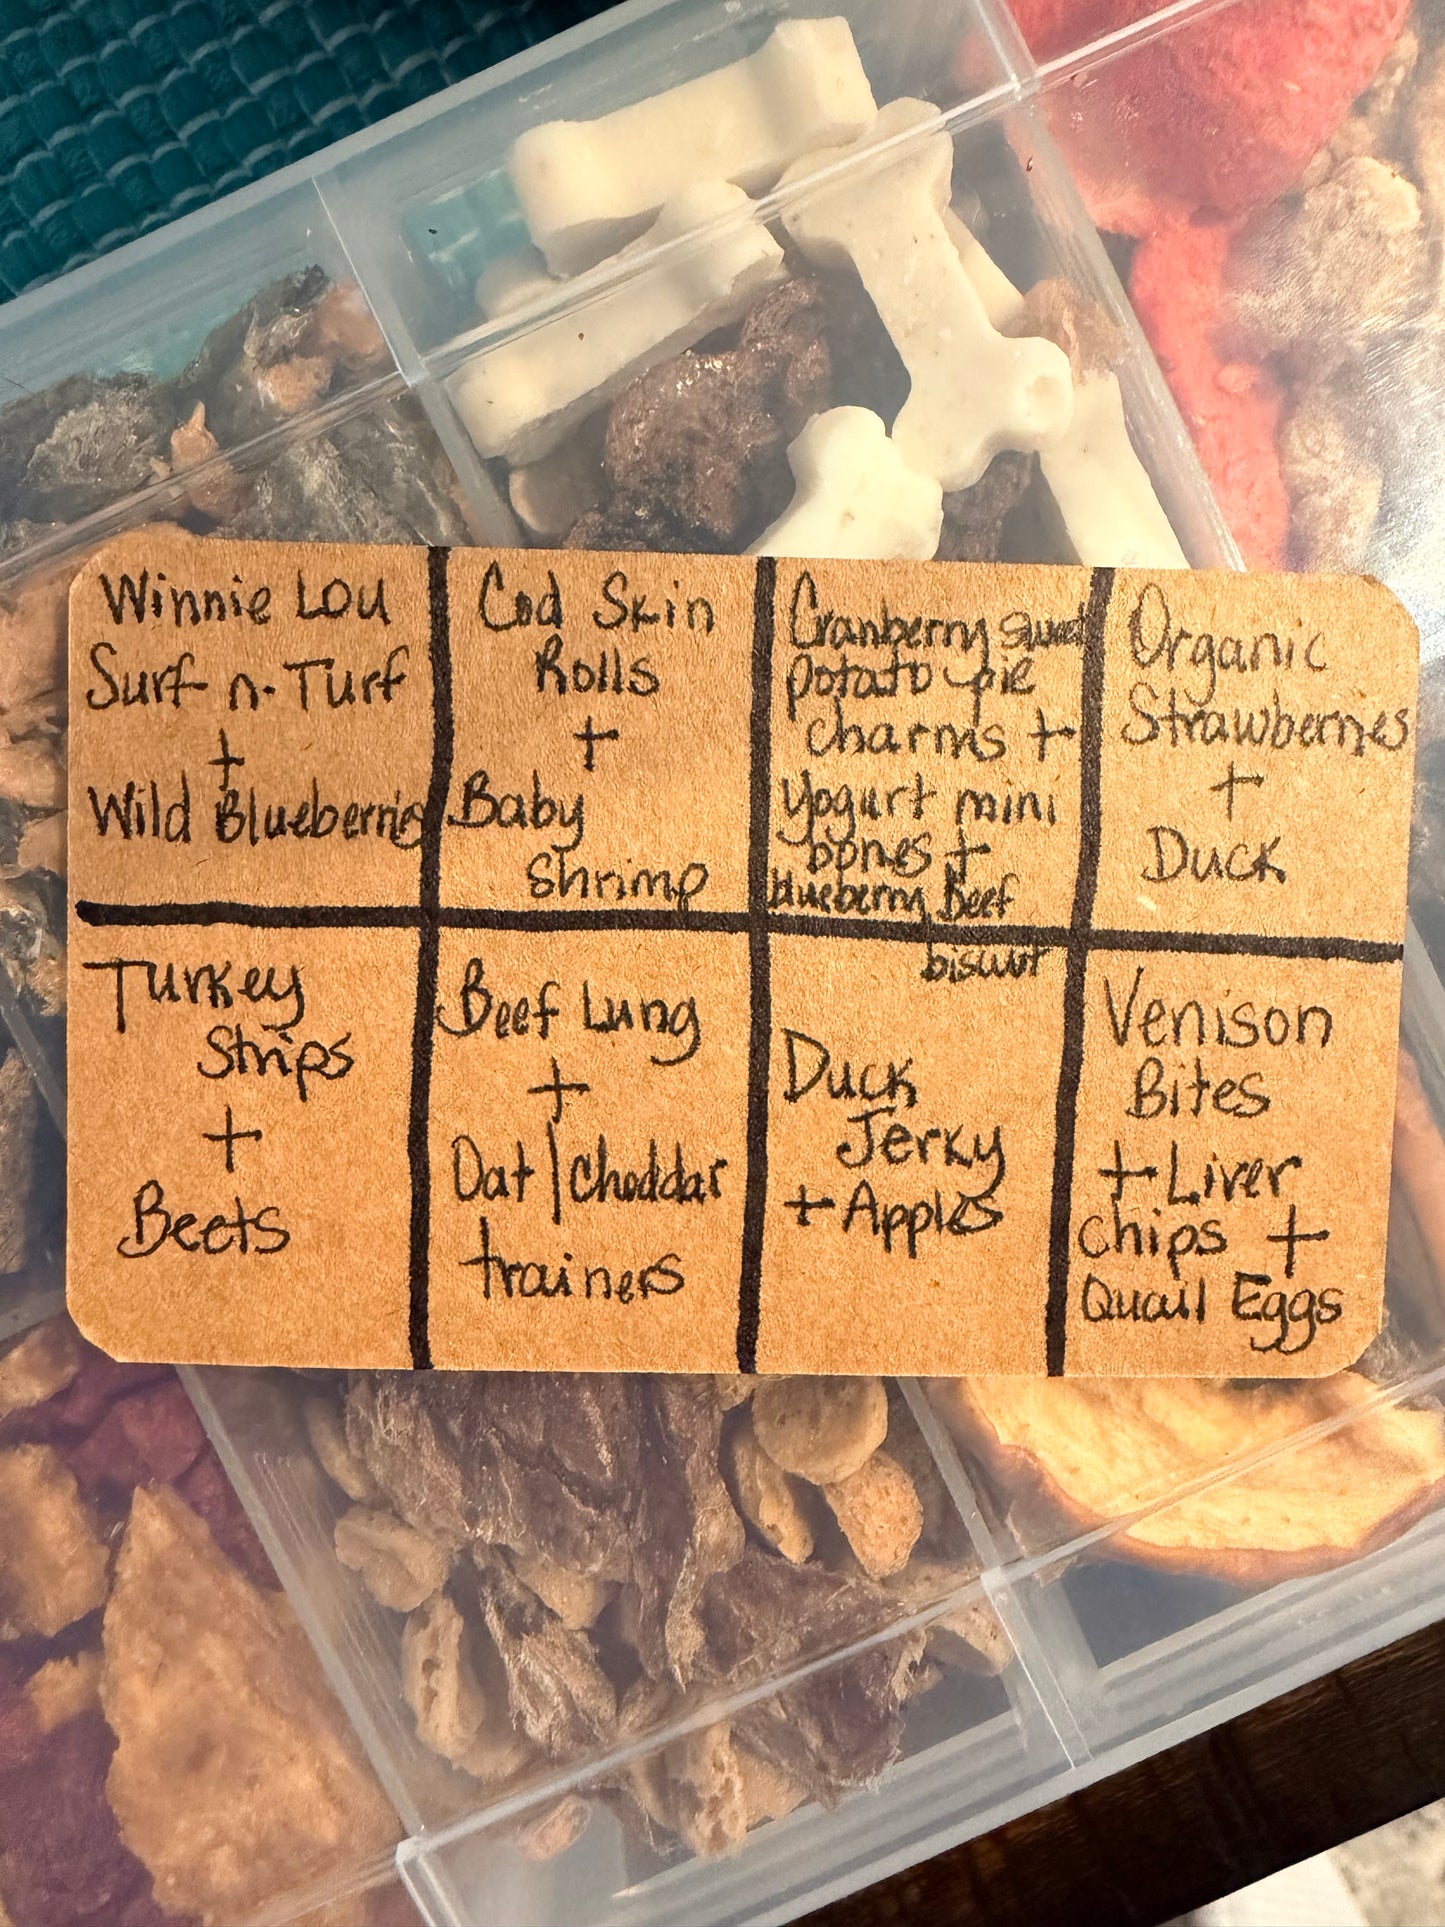 Winnie Lou
Surf n. Turf
+
Wild Blueberries
Cod Skin
Rolls
+
Baby
Shrimp
Cranberry sweet
potato pie
charms +
Yogurt mini
bones +
blueberry Beef
biscuit
Organic
Strawberries
+
Duck
Turkey
Strips
+
Beets
Beef Lung
+
Oat | Cheddar
trainers
Duck
Jerky
+ Apples
Venison
Bites
+ Liver
chips +
Quail Eggs